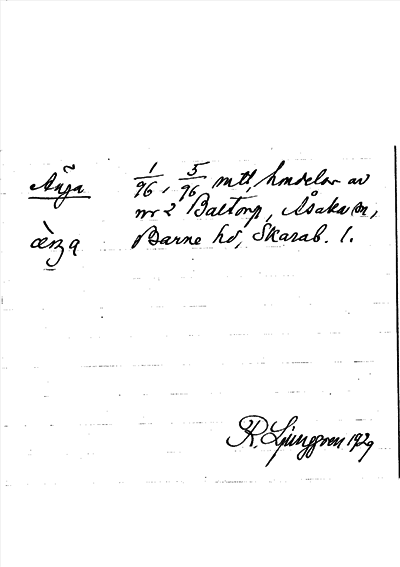 Änga 1/96, 5/96 mtl, hmdelar av
nr 2 Baltorp, Åsaka sn,
Barne hd, Skarab. l.
R. Ljunggren 1929